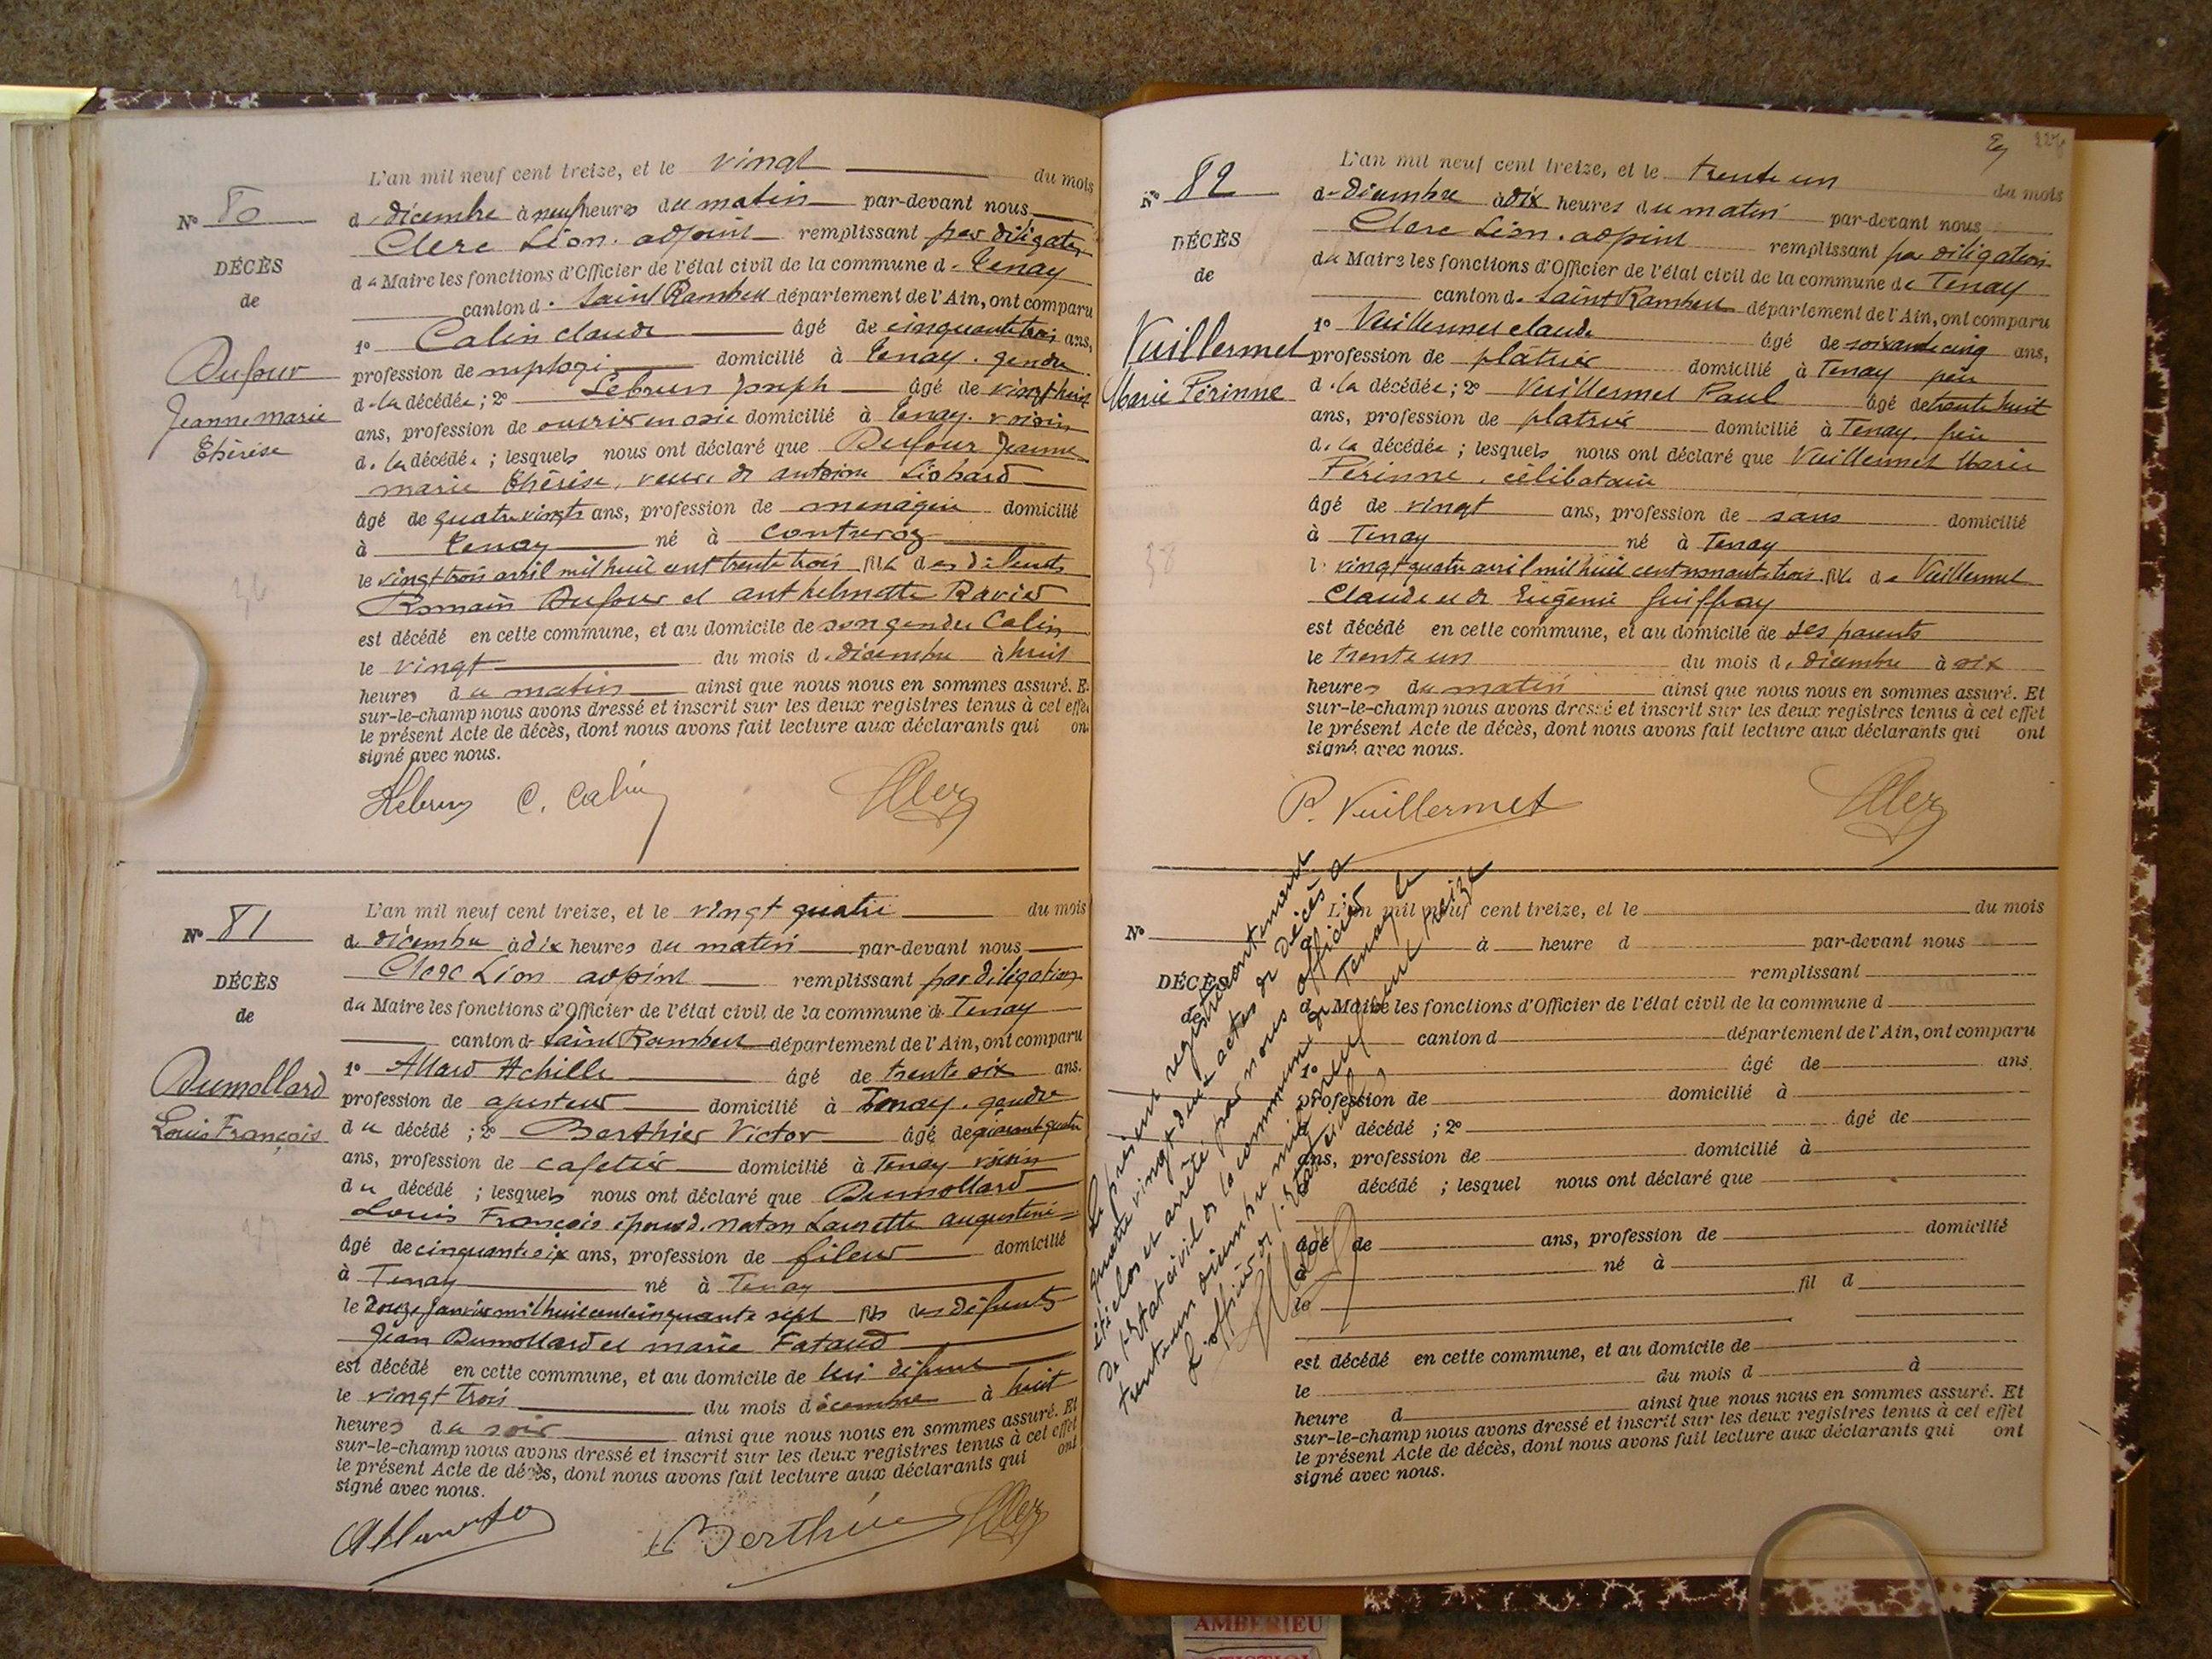 L'an mil neuf cent treize, et le vingt du mois
N° 80
de décembre à neuf heures du matin par-devant nous
Clerc Léon adjoint remplissant par délégation
DÉCÈS
du Maire les fonctions d'Officier de l'état civil de la commune de Tenay
de
canton de Saint Rambert département de l'Ain, ont comparu
1° Calin claude âgé de cinquante trois ans,
Dufour
profession de employé domicilié à Tenay. gendre
Jeanne Marie
de la décédée; 2° Lebrun Joseph âgé de vingt huit
Thérèse
ans, profession de ouvrier en soie domicilié à Tenay. voisin
de la décédée; lesquels nous ont déclaré que Dufour Jeanne
marie Thérèse, veuve de antoine Liobard
âgé de quatre vingts ans, profession de ménagère domicilié
à Tenay né à Contrevoz
le vingt trois avril mil huit cent trente trois fille des défunts
Romain Dufour et anthelmette Ravier
est décédé en cette commune, et au domicile de son gendre Calin
le vingt du mois de décembre à huit
heures du matin ainsi que nous nous en sommes assuré. E
sur-le-champ nous avons dressé et inscrit sur les deux registres tenus à cet effet
le présent Acte de décès, dont nous avons fait lecture aux déclarants qui on
signé avec nous.
JLebrun C. Calin Clerc
L'an mil neuf cent treize, et le vingt quatre du mois
N° 81
de décembre à dix heures du matin par-devant nous
Clerc Léon adjoint remplissant par délégation
DÉCÈS
du Maire les fonctions d'Officier de l'état civil de la commune de Tenay
de
canton de Saint Rambert département de l'Ain, ont comparu
Dumollard
1° Allard Achille âgé de trente six ans.
profession de ajusteur domicilié à Tenay. gendre
Louis François
du décédé; 2° Berthier Victor âgé de quarante quatre
ans, profession de cafetier domicilié à Tenay voisin
du décédé; lesquels nous ont déclaré que Dumollard
Louis François époux de Laurette augustine
âgé de cinquante six ans, profession de fileur domicilié
à Tenay né à Tenay
le douze janvier mil huit cent cinquante sept fils des défunts
Jean Dumollard et marie Fataud
est décédé en cette commune, et au domicile de lui défunt
le vingt trois du mois décembre à huit
heures du soir ainsi que nous nous en sommes assuré. Et
sur-le-champ nous avons dressé et inscrit sur les deux registres tenus à cet effet
le présent Acte de décès, dont nous avons fait lecture aux déclarants qui ont
signé avec nous.
Berthier Clerc
L'an mil neuf cent treize, et le trente un du mois
N° 82
de décembre à dix heures du matin par-devant nous
Clerc Léon. adjoint remplissant par délégation
DÉCÈS
du Maire les fonctions d'Officier de l'état civil de la commune de Tenay
de
canton de Saint Rambert département de l'Ain, ont comparu
Vuillermet
1° Vuillermet claude âgé de soixante cinq ans,
profession de plâtrier domicilié à Tenay père
Marie Périnne
de la décédée; 2° Vuillermet Paul âgé de trente huit
ans, profession de platrier domicilié à Tenay. frère
de la décédée; lesquels nous ont déclaré que Vuillermet Marie
Périnne, célibataire
âgé de vingt ans, profession de sans domicilié
à Tenay né à Tenay
le vingt quatre avril mil huit cent nonante trois fille de Vuillermet
Claude et de Eugénie Guiffray
est décédé en cette commune, et au domicile de ses parents
le trente un du mois de décembre à six
heures du matin ainsi que nous nous en sommes assuré. Et
sur-le-champ nous avons dressé et inscrit sur les deux registres tenus à cet effet
le présent Acte de décès, dont nous avons fait lecture aux déclarants qui ont
signé avec nous.
P. Vuillermet Clerc
L'an mil neuf cent treize, et le du mois
N°
à heure d par-devant nous
remplissant
DÉCÈS
d Maire les fonctions d'Officier de l'état civil de la commune d
de
canton d département de l'Ain, ont comparu
1° âgé de ans
profession de domicilié à
d décédé; 2° âgé de
ans, profession de domicilié à
décédé; lesquel nous ont déclaré que
âgé de ans, profession de domicilié
à né à
le fil d
est décédé en cette commune, et au domicile de
le du mois d à
heure d ainsi que nous nous en sommes assuré. Et
sur-le-champ nous avons dressé et inscrit sur les deux registres tenus à cet effet
le présent Acte de décès, dont nous avons fait lecture aux déclarants qui ont
signé avec nous.
Le présent registre contenant
quatre vingt deux actes de décès a
été clos et arrêté par nous officier
de l'Etat civil de la commune de Tenay le
trente un décembre mil neuf cent treize
L'officier de l'Etat civil,
Clerc
AMBERIEU